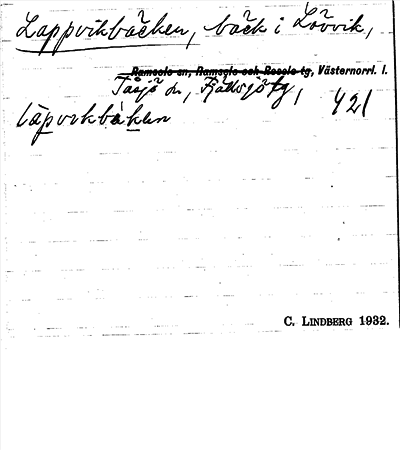 Lappvikbäcken, bäck i Lövvik,
Ramsele sn, Ramsele och Resele tg, Västernorrl. l.
Tåsjö sn, Fjällsjö tg, 421
lápvikbákɯn
C. LINDBERG 1932.